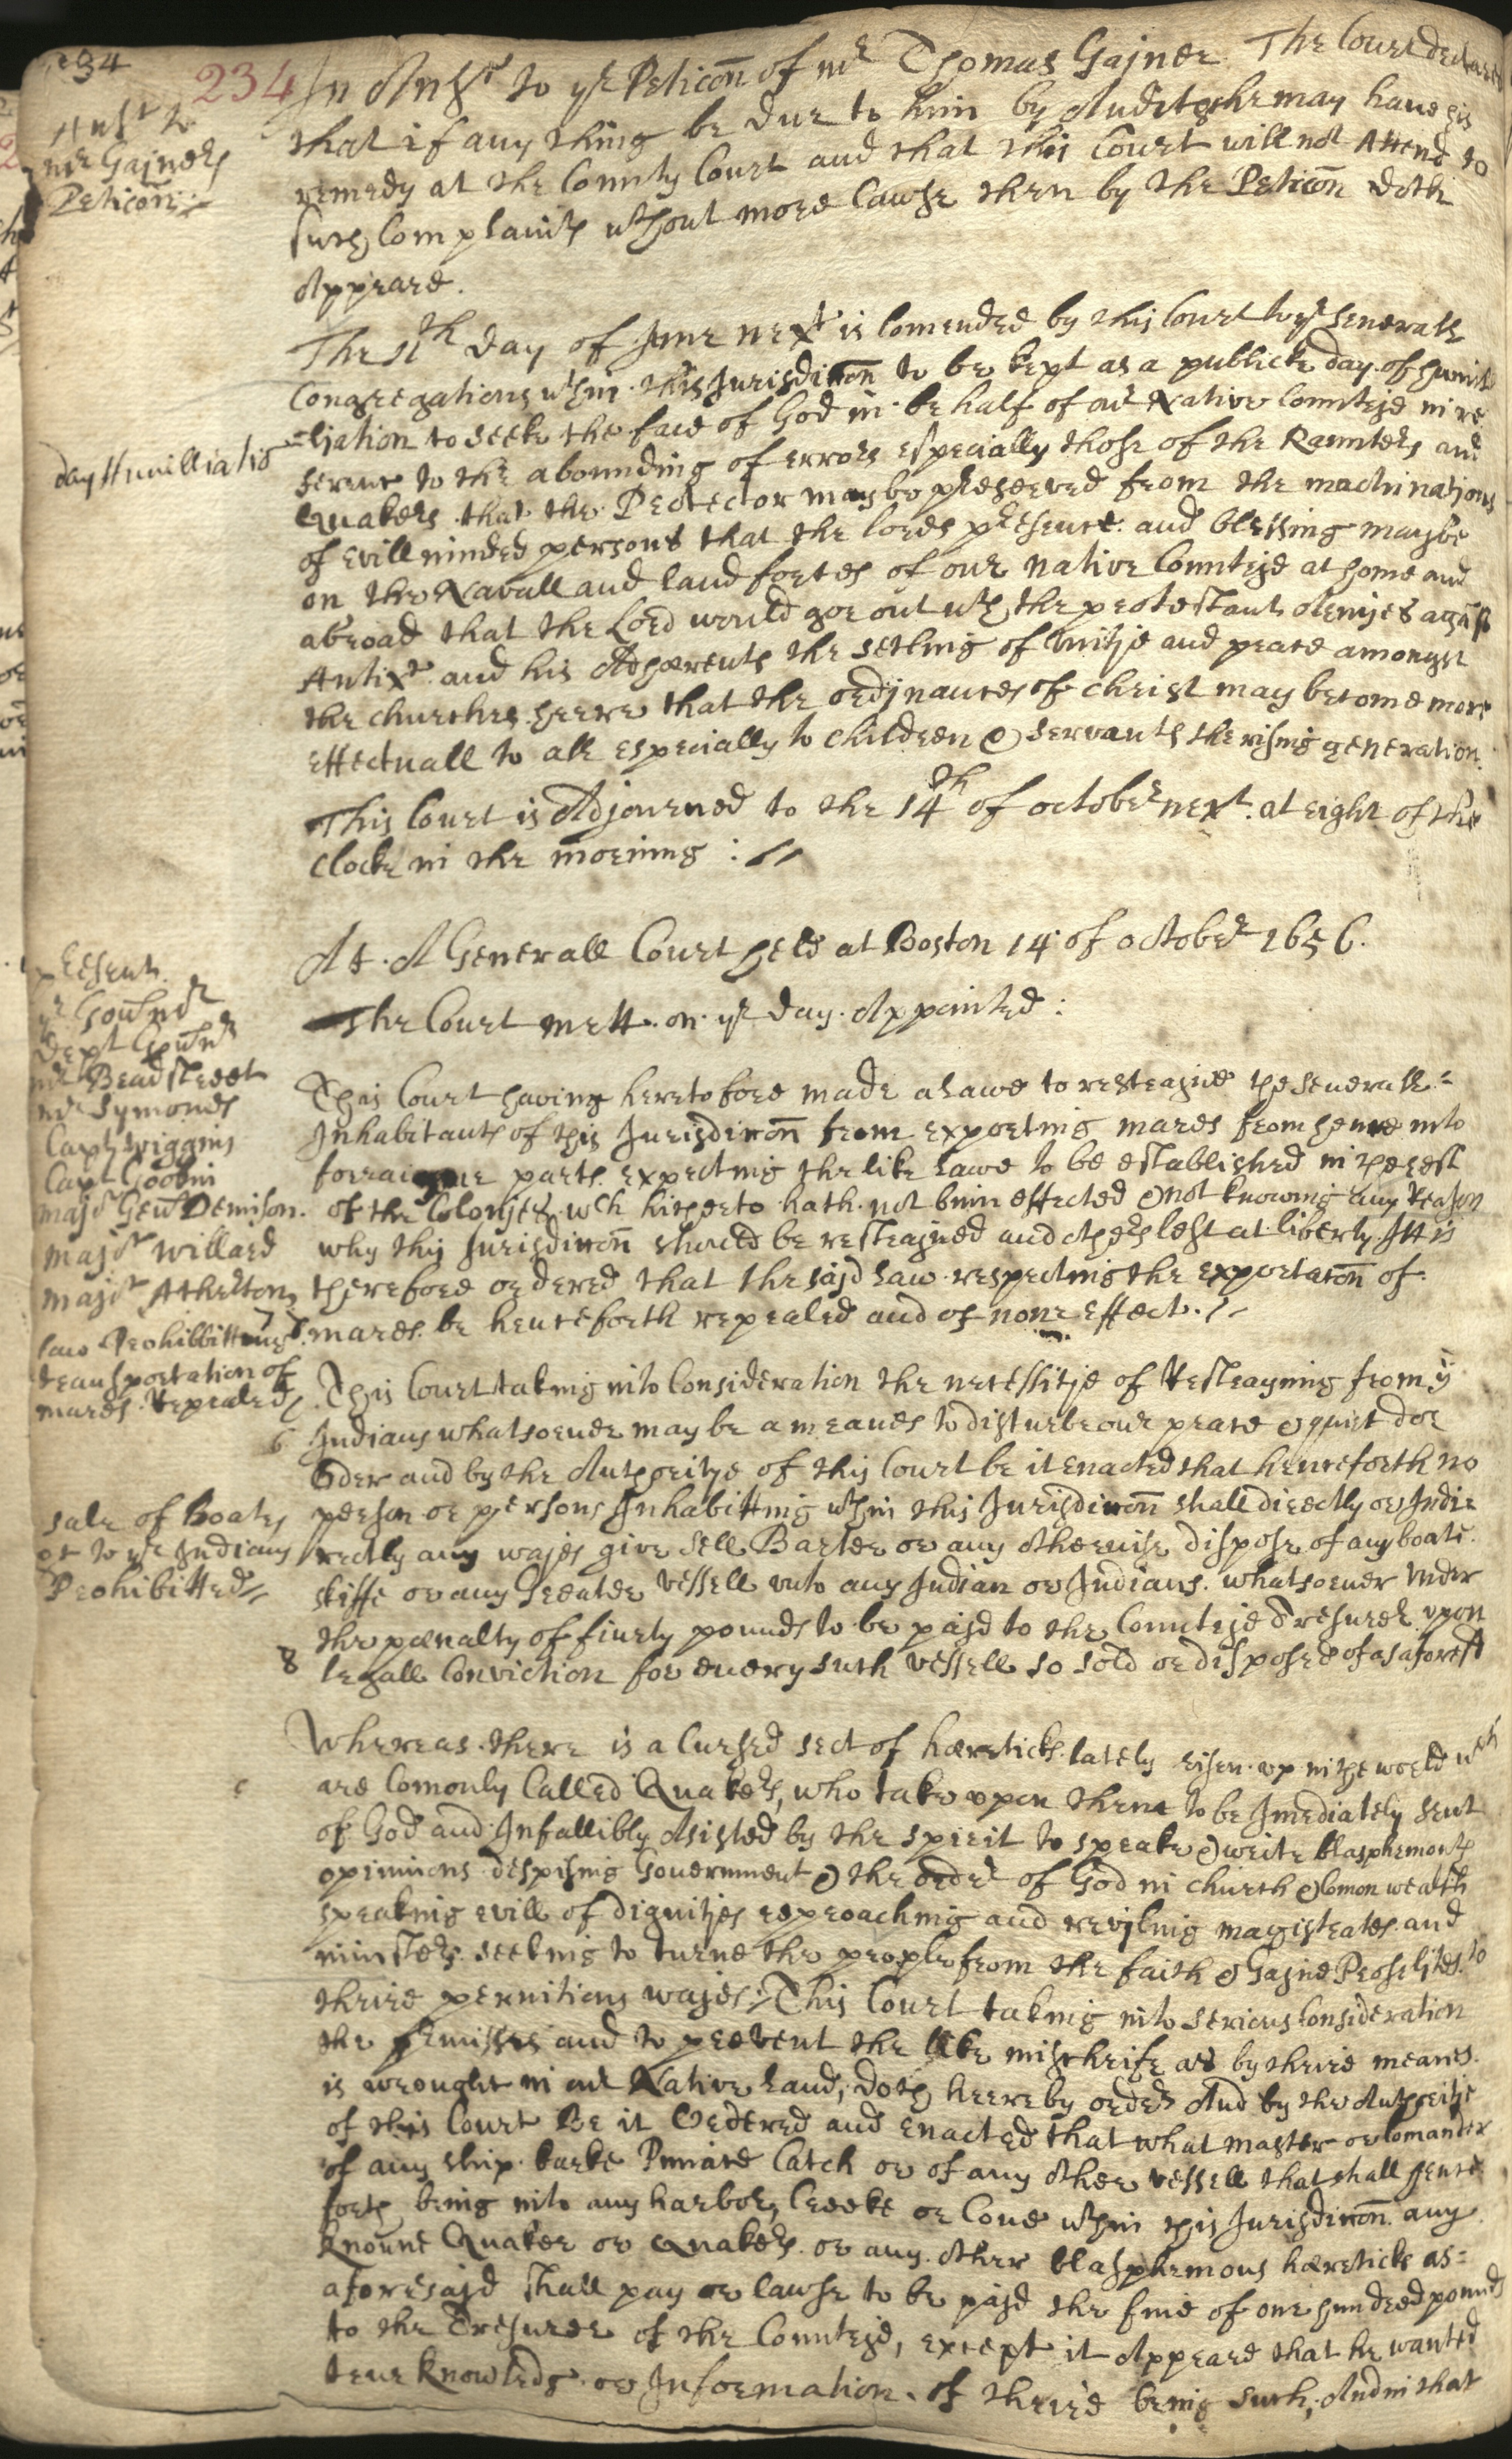 234
234
Ansr to
mr Gajners
Peticōn:
In Ansr to ye Peticōn of mr Thomas Gajner The Court declares
that if any thing be due to him by Audit he may haue his
remedy at the County Court and that this Court will not Attend to
such Complaints wthout more Cawse then by the Peticōn doth
Appeare.
day Humilliatiō
The 11th day of June next is Comended by this Court to ye seuerall
Congregations wthin this Jurisdiccōn to be kept as a publicke day of humi
=liation to seeke the face of God in behalf of our Native Countrje in re
ference to the abounding of errors especially those of the Raunters and
Quakers that the Protector may be preserved from the machinations
of evill minded persons that the lords presence and blessing may be
on the Navall and land forces of our native Countrje at home and
abroad that the Lord would goe out wth the protestant Armjes agst
Antixt and his Adhærents the setling of vnitje and peace amongst
the churches heere that the ordjnances of christ may become more
effectuall to all especially to children & servants the rising generation.
This Court is Adjourned to the 14th of october next at eight of the
clocke in the morning :
At A Generall Court held at Boston 14 of october 1656.
The Court mett on ye day Appointed:
Present
ye Gouernr
Dept Gouernr
mr Bradstreet
mr Symonds
Capt wiggins
Capt Gookin
majr Genl Denison.
majr Willard
majr Atherton,
This Court having heretofore made a lawe to restrajne the seuerall=
Inhabitants of this Jurisdiccōn from exporting mares from hence into
forraigne parts expecting the like lawe to be established in the rest
of the Colonjes wch hitherto hath not binn effected & not knowing any Reason
why this Jurisdiccōn should be restrajned and others left at liberty Itt is
therefore ordered that the sajd law respecting the exportacōn of
mares be henceforth repealed and of none effect.
law Prohibitting
transportation of
mares Repealed
This Court taking into Consideration the necessitje of Restrayning from ye
6 Indians whatsoeuer may be a meanes to disturbe our peace & quiet doe
Order and by the Authoritje of this Court be it enacted that henceforth no
person or persons Inhabitting wthin this Jurisdiccōn shall directly or Indi
rectly any wajes give sell Barter or any otherwise dispose of any boate
skiffe or any Greater vessell vnto any Indian or Indians whatsoeuer vnder
the pænalty of fiuety pounds to be pajd to the Countrje Tresurer vpon
8 legall Conviction for euery such vessell so sold or disposed of as aforesd
sale of Boates
&c to ye Indians
Prohibitted
Whereas there is a Cursed sect of hæreticks lately risen vp in the world wch
are Comonly Called Quakers, who take vpon them to be Imediately sent
of God and Infallibly Asisted by the spirit to speake & write blasphemouth
opinions despising Gouernment & the order of God in church & Comon wealth
speaking evill of dignitjes reproaching and revjling magistrates and
ministers seeking to turne the people from the faith & Gajne Proselites to
theire pernitious wajes: This Court taking into serious Consideration
the premisses and to prevent the like mischeife as by theire meanes
is wrought in our Native Land, doth heereby order And by the Authoritje
of this Court Be it Ordered and enacted that what master or Comander
of any ship barke Pinnace Catch or of any other vessell that shall hence
forth bring into any harbor, Creeke or Cove wthin this Jurisdiccōn any
knoune Quaker or Quakers or any other blasphemous hæreticks as=
aforesajd shall pay or Cawse to be pajd the fine of one hundred pounds
to the Tresurer of the Countrje, except it Appeare that he wanted
true knowledg or Information of theire being such, And in that